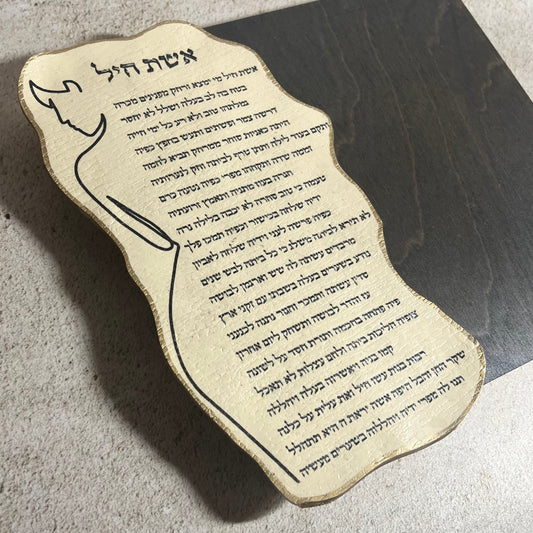 אשת חיל
אשת חיל מי ימצא ורחק מפנינים מכרה
בטח בה לב בעלה ושלל לא יחסר
גמלתהו טוב ולא רע כל ימי חייה
דרשה צמר ופשתים ותעש בחפץ כפיה
היתה כאניות סוחר ממרחק תביא לחמה
ותקם בעוד לילה ותתן טרף לביתה וחק לנערותיה
זממה שדה ותקחהו מפרי כפיה נטעה כרם
חגרה בעוז מתניה ותאמץ זרועתיה
טעמה כי טוב סחרה לא יכבה בלילה נרה
ידיה שלחה בכישור וכפיה תמכו פלך
כפיה פרשה לעני וידיה שלחה לאביון
לא תירא לביתה משלג כי כל ביתה לבש שנים
מרבדים עשתה לה שש וארגמן לבושה
נודע בשערים בעלה בשבתו עם זקני ארץ
סדין עשתה ותמכר וחגור נתנה לכנעני
עז והדר לבושה ותשחק ליום אחרון
פיה פתחה בחכמה ותורת חסד על לשונה
צופיה הליכות ביתה ולחם עצלות לא תאכל
קמו בניה ויאשרוה בעלה ויהללה
רבות בנות עשו חיל ואת עלית על כלנה
שקר החן והבל היופי אשה יראת ה היא תתהלל
תנו לה מפרי ידיה ויהללוה בשערים מעשיה